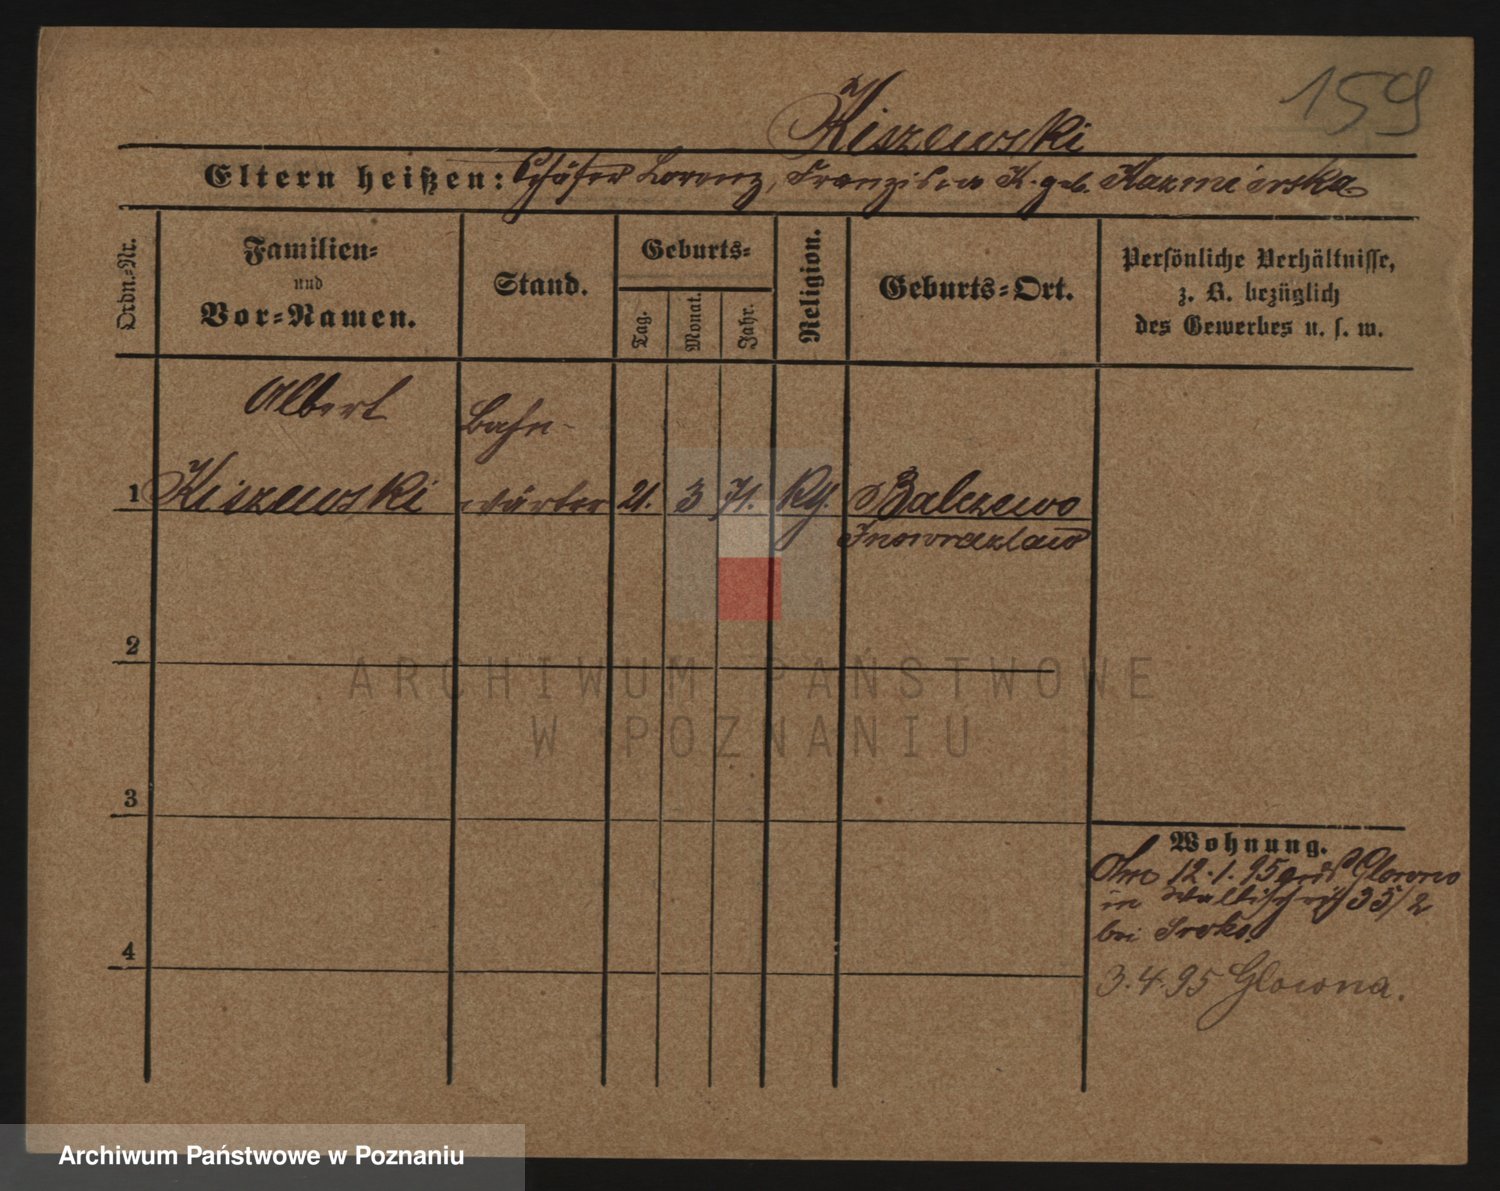 159
Kiszewski
Eltern heißen: Schäfer Lorenz, Franziska K. geb. Kazmierska
Ordn.=Nr.
Familien=
und
Vor=Namen.
Stand.
Geburts=
Tag.
Monat.
Jahr.
Religion.
Geburts=Ort.
Persönliche Verhältnisse,
z. B. bezüglich
des Gewerbes u. s. w.
Albert Bahn-
1 Kiszewski wärter 21. 3 71. Balczewo
Inowrazlaw
2
3
4
Wohnung.
12.1.95 Glowno
in Wallischei 35/2
bei Sroka
3.4.95 Glowna.
ARCHIWUM PAŃSTWOWE
W POZNANIU
Archiwum Państwowe w Poznaniu